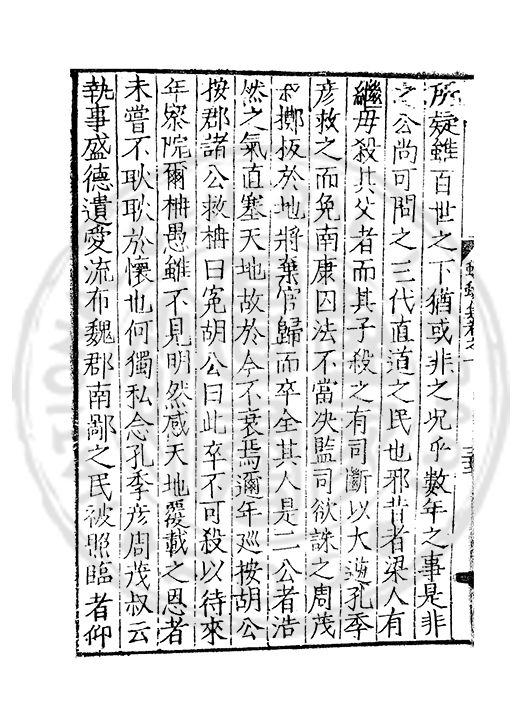 所疑雖百世之下猶或非之况乎數年之事是非
之公尚可問之三代直道之民也邪昔者梁人有
繼母殺其父者而其子殺之有司斷以大逆孔季
彦救之而免南康囚法不當决監司欲誅之周茂
叔擲板於地將棄官歸而卒全其人是二公者浩
然之氣直塞天地故於今不衰焉彌年廵按胡公
按郡諸公救柟曰寃胡公曰此卒不可殺以待來
年察院爾柟愚雖不見明然感天地覆載之恩者
未嘗不耿耿於懷也何獨私念孔季彦周茂叔云
執事盛德遺愛流布魏郡南鄙之民被照臨者仰
蠛蠓集卷之一